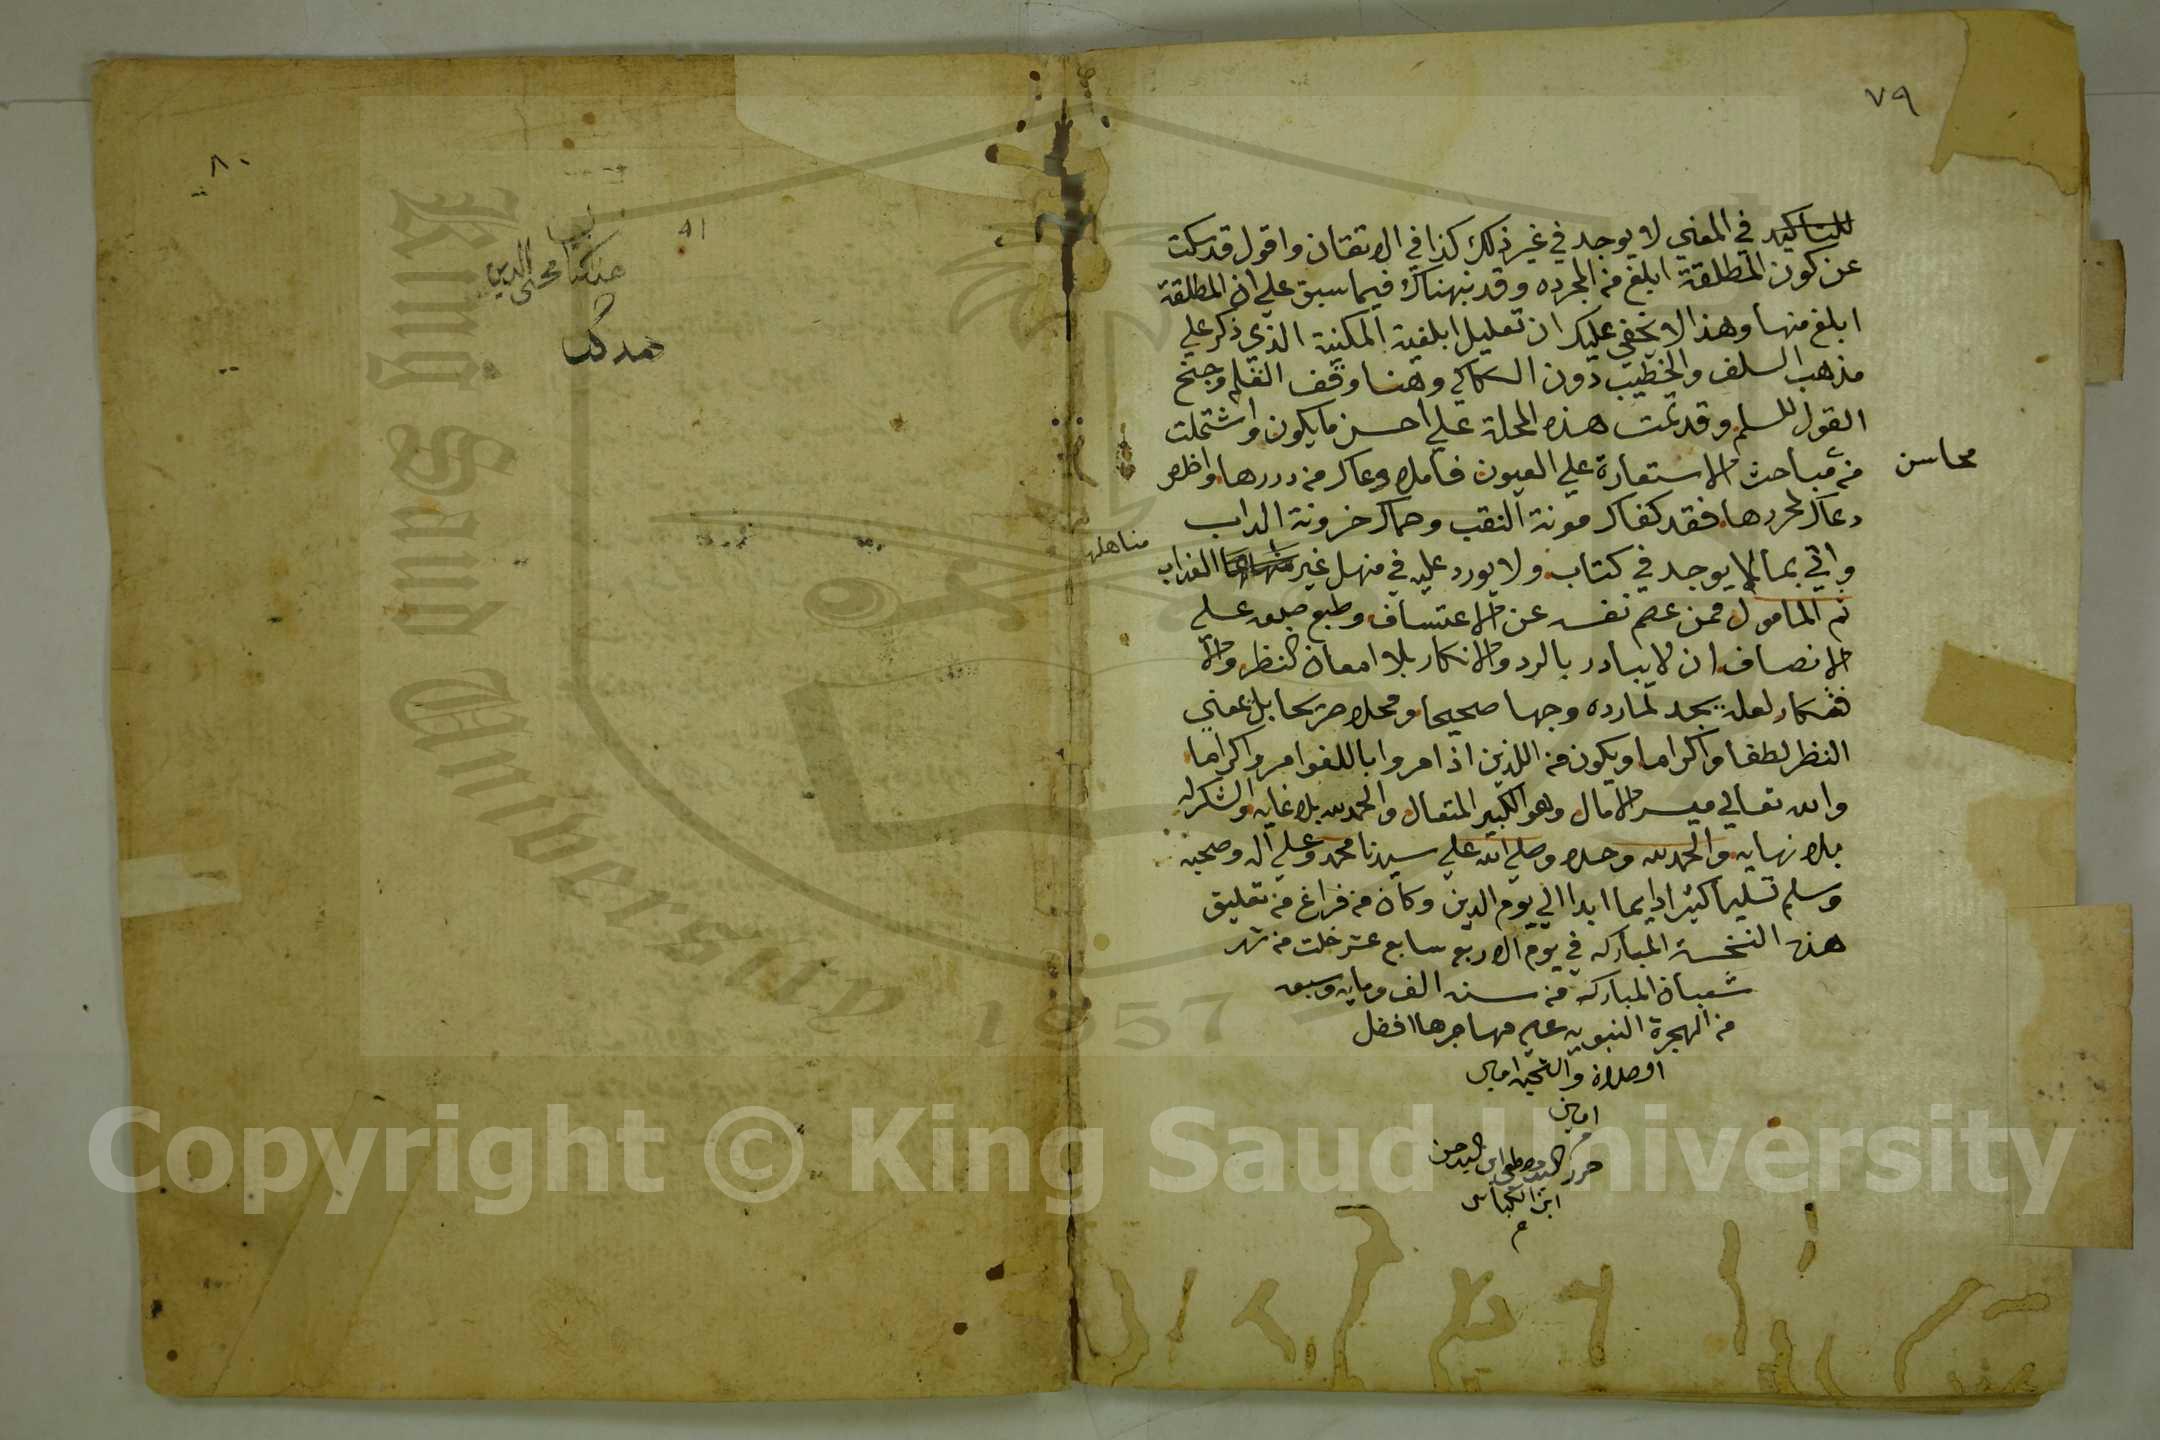 ٧٩
للتاكيد في المعني لا يوجد في غير ذلك كذا في الاتقان واقول قد سكت
عن كون المطلقة ابلغ من المجرده وقد نبهناك فيما سبق علي ان المطلقة
ابلغ منها وهذا لا يخفي عليك ان تعليل ابلغية المكنية الذي ذكر علي
مذهب السلف والخطيب دون السكاكي وهنا وقف القلم وجنح
القول للسلم وقد تمت هذه المجلة علي احسن ما يكون واشتملت
من مباحث الاستعارة علي العيون فاملا وعاك من دررها واظهر
محاسن
دعاك لمحررها فقد كفاك مونة النقب وحماك خزونة الداب
واتي بما لا يوجد في كتاب ولا يورد عليه في منهل غير منهاهها العذاب
مناهلها
ثم المامول ممن عصم نفسه عن الاعتساف وطبع طبعه علي
الانصاف ان لا يبادر بالرد والانكار بلا امعان النظر والا
فتكار لعله يجد لما رده وجها صحيحا ومحلا صريحا بل يمعني
النظر لطفا واكراما ويكون من اللذين اذا مروا باللغو امر واكراما
والله تعالي ميسر الامال وهو الكبير المتعال والحمد لله بلا غايه والشكر له
بلا نهايه والحمد لله وحده وصلي الله علي سيدنا محمد وعلي اله وصحبه
وسلم تسليما كثيرا دايما ابدا الي يوم الدين وكان من فراغ من تعليق
هذه النخسة المباركه في يوم الاربع سابع عشر خلت من شهر
شعبان المباركه من سنه الف ومايه وسبعه
من الهجرة النبويه علي مهاجرها افضل
الاصلاة والتحيه امين
امين
حرر السيد مصطفي ابن السيد حسن
ابن الكباس
م
٨٠
٨١
محيي الدين
King Saud University
1957
Copyright © King Saud University